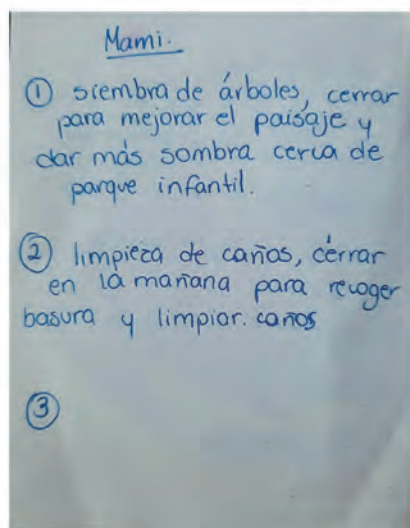 Mami.
① siembra de árboles, cerrar
para mejorar el paisaje y
dar más sombra cerca de
parque infantil.
② limpieza de caños, cerrar
en la mañana para recoger
basura y limpiar. caños
③